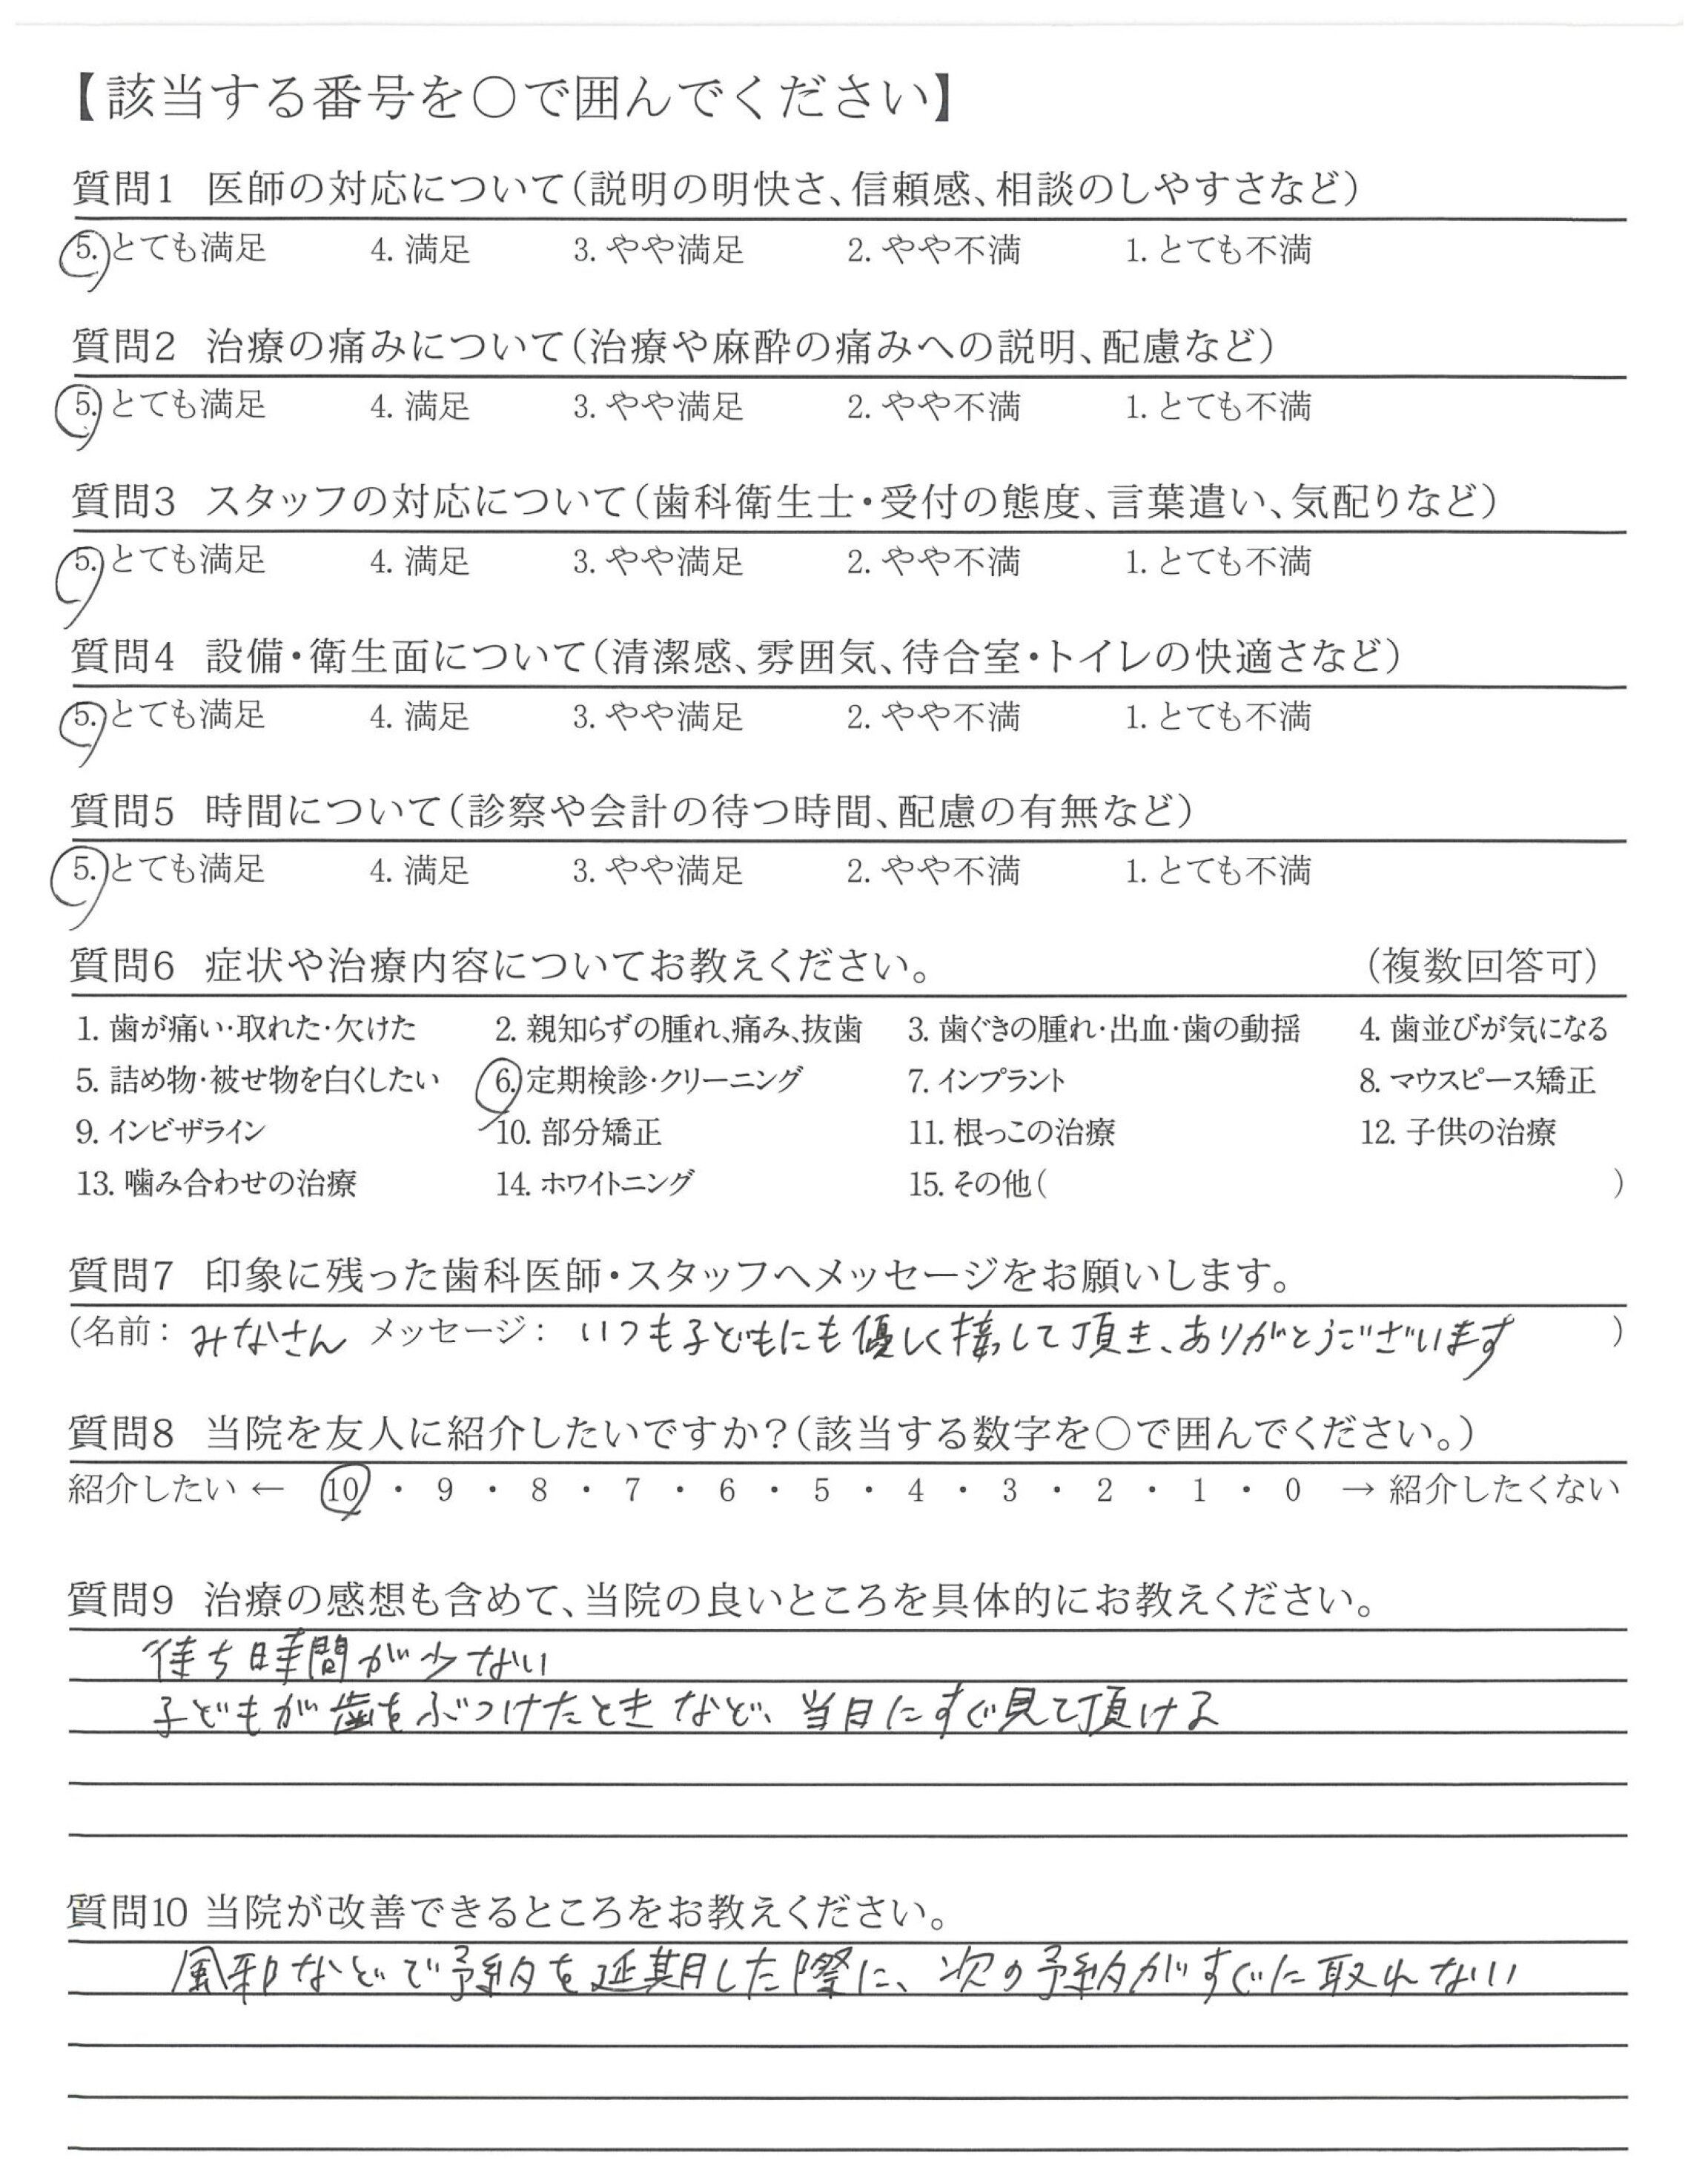 【該当する番号を○で囲んでください】
質問1 医師の対応について(説明の明快さ、信頼感、相談のしやすさなど)
5. とても満足 4. 満足 3. やや満足 2. やや不満 1. とても不満
質問2 治療の痛みについて(治療や麻酔の痛みへの説明、配慮など)
5. とても満足 4. 満足 3. やや満足 2. やや不満 1. とても不満
質問3 スタッフの対応について(歯科衛生士・受付の態度、言葉遣い、気配りなど)
5. とても満足 4. 満足 3. やや満足 2. やや不満 1. とても不満
質問4 設備・衛生面について(清潔感、雰囲気、待合室・トイレの快適さなど)
5. とても満足 4. 満足 3. やや満足 2. やや不満 1. とても不満
質問5 時間について(診察や会計の待つ時間、配慮の有無など)
5. とても満足 4. 満足 3. やや満足 2. やや不満 1. とても不満
質問6 症状や治療内容についてお教えください。 (複数回答可)
1. 歯が痛い・取れた・欠けた 2. 親知らずの腫れ、痛み、抜歯 3. 歯ぐきの腫れ・出血・歯の動揺 4. 歯並びが気になる
5. 詰め物・被せ物を白くしたい 6. 定期検診・クリーニング 7. インプラント 8. マウスピース矯正
9. インビザライン 10. 部分矯正 11. 根っこの治療 12. 子供の治療
13. 噛み合わせの治療 14. ホワイトニング 15. その他( )
質問7 印象に残った歯科医師・スタッフへメッセージをお願いします。
(名前: みなさん メッセージ: いつも子どもにも優しく接して頂き、ありがとうございます )
質問8 当院を友人に紹介したいですか?(該当する数字を○で囲んでください。)
紹介したい ← 10 ・ 9 ・ 8 ・ 7 ・ 6 ・ 5 ・ 4 ・ 3 ・ 2 ・ 1 ・ 0 → 紹介したくない
質問9 治療の感想も含めて、当院の良いところを具体的にお教えください。
待ち時間が少ない
子どもが歯をぶつけたときなど、当日にすぐ見て頂ける
質問10 当院が改善できるところをお教えください。
風邪などで予約を延期した際に、次の予約がすぐに取れない